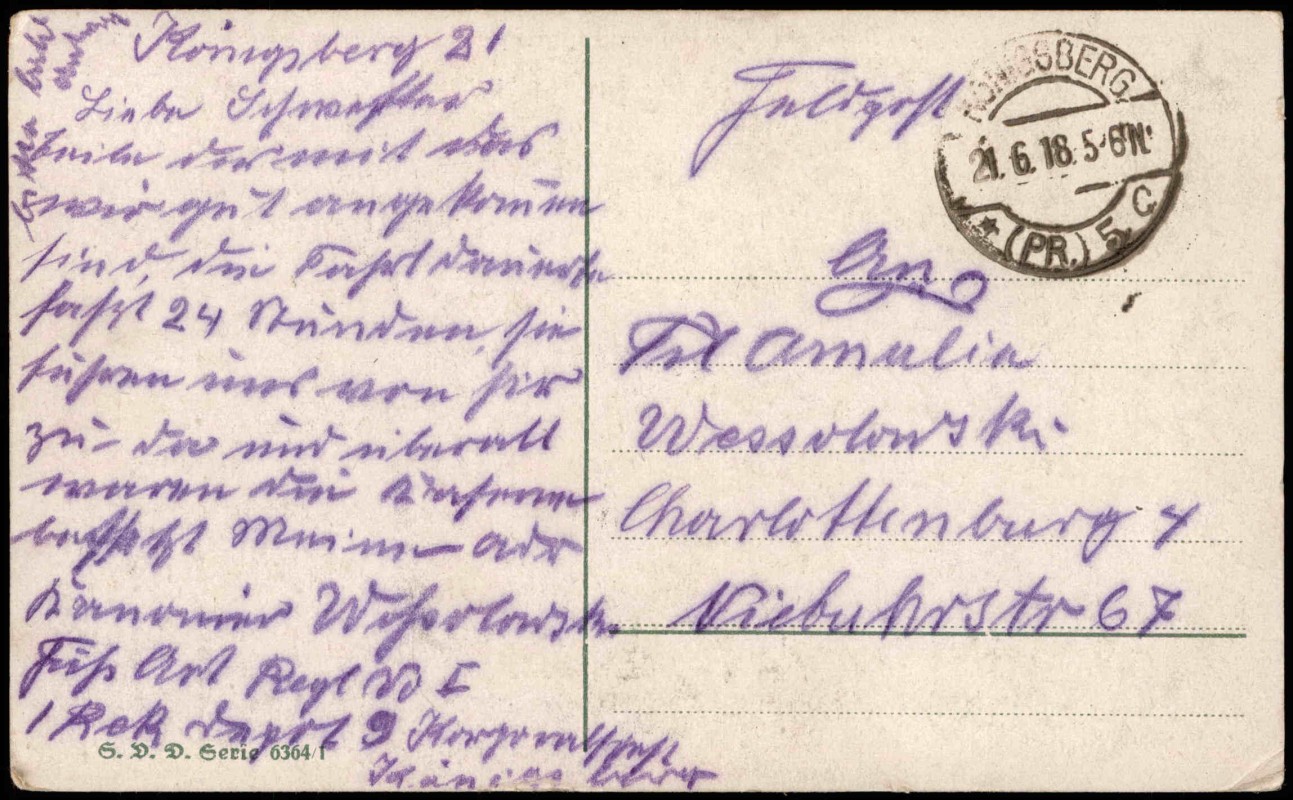 Königsberg 21
Liebe Schwester
Teile dir mit das
wir gut angekommen
sind, die Fahrt dauerte
fast 24 Stunden, sie
führen uns von hir
zu da und überall
waren die Kasernen
besetzt Meine Adr
Kanonier Wessolowski
Fuß Art Regt No I
1 Rek Depot 9 Korporalschaft
Königsberg
Feldpost
KÖNIGSBERG
21.6.18.5-6N.
* (PR.) 5. C
An
Frl Amalie
Wessolowski
Charlottenburg 4
Niebuhrstr 67
S. V. D. Serie 6364/1